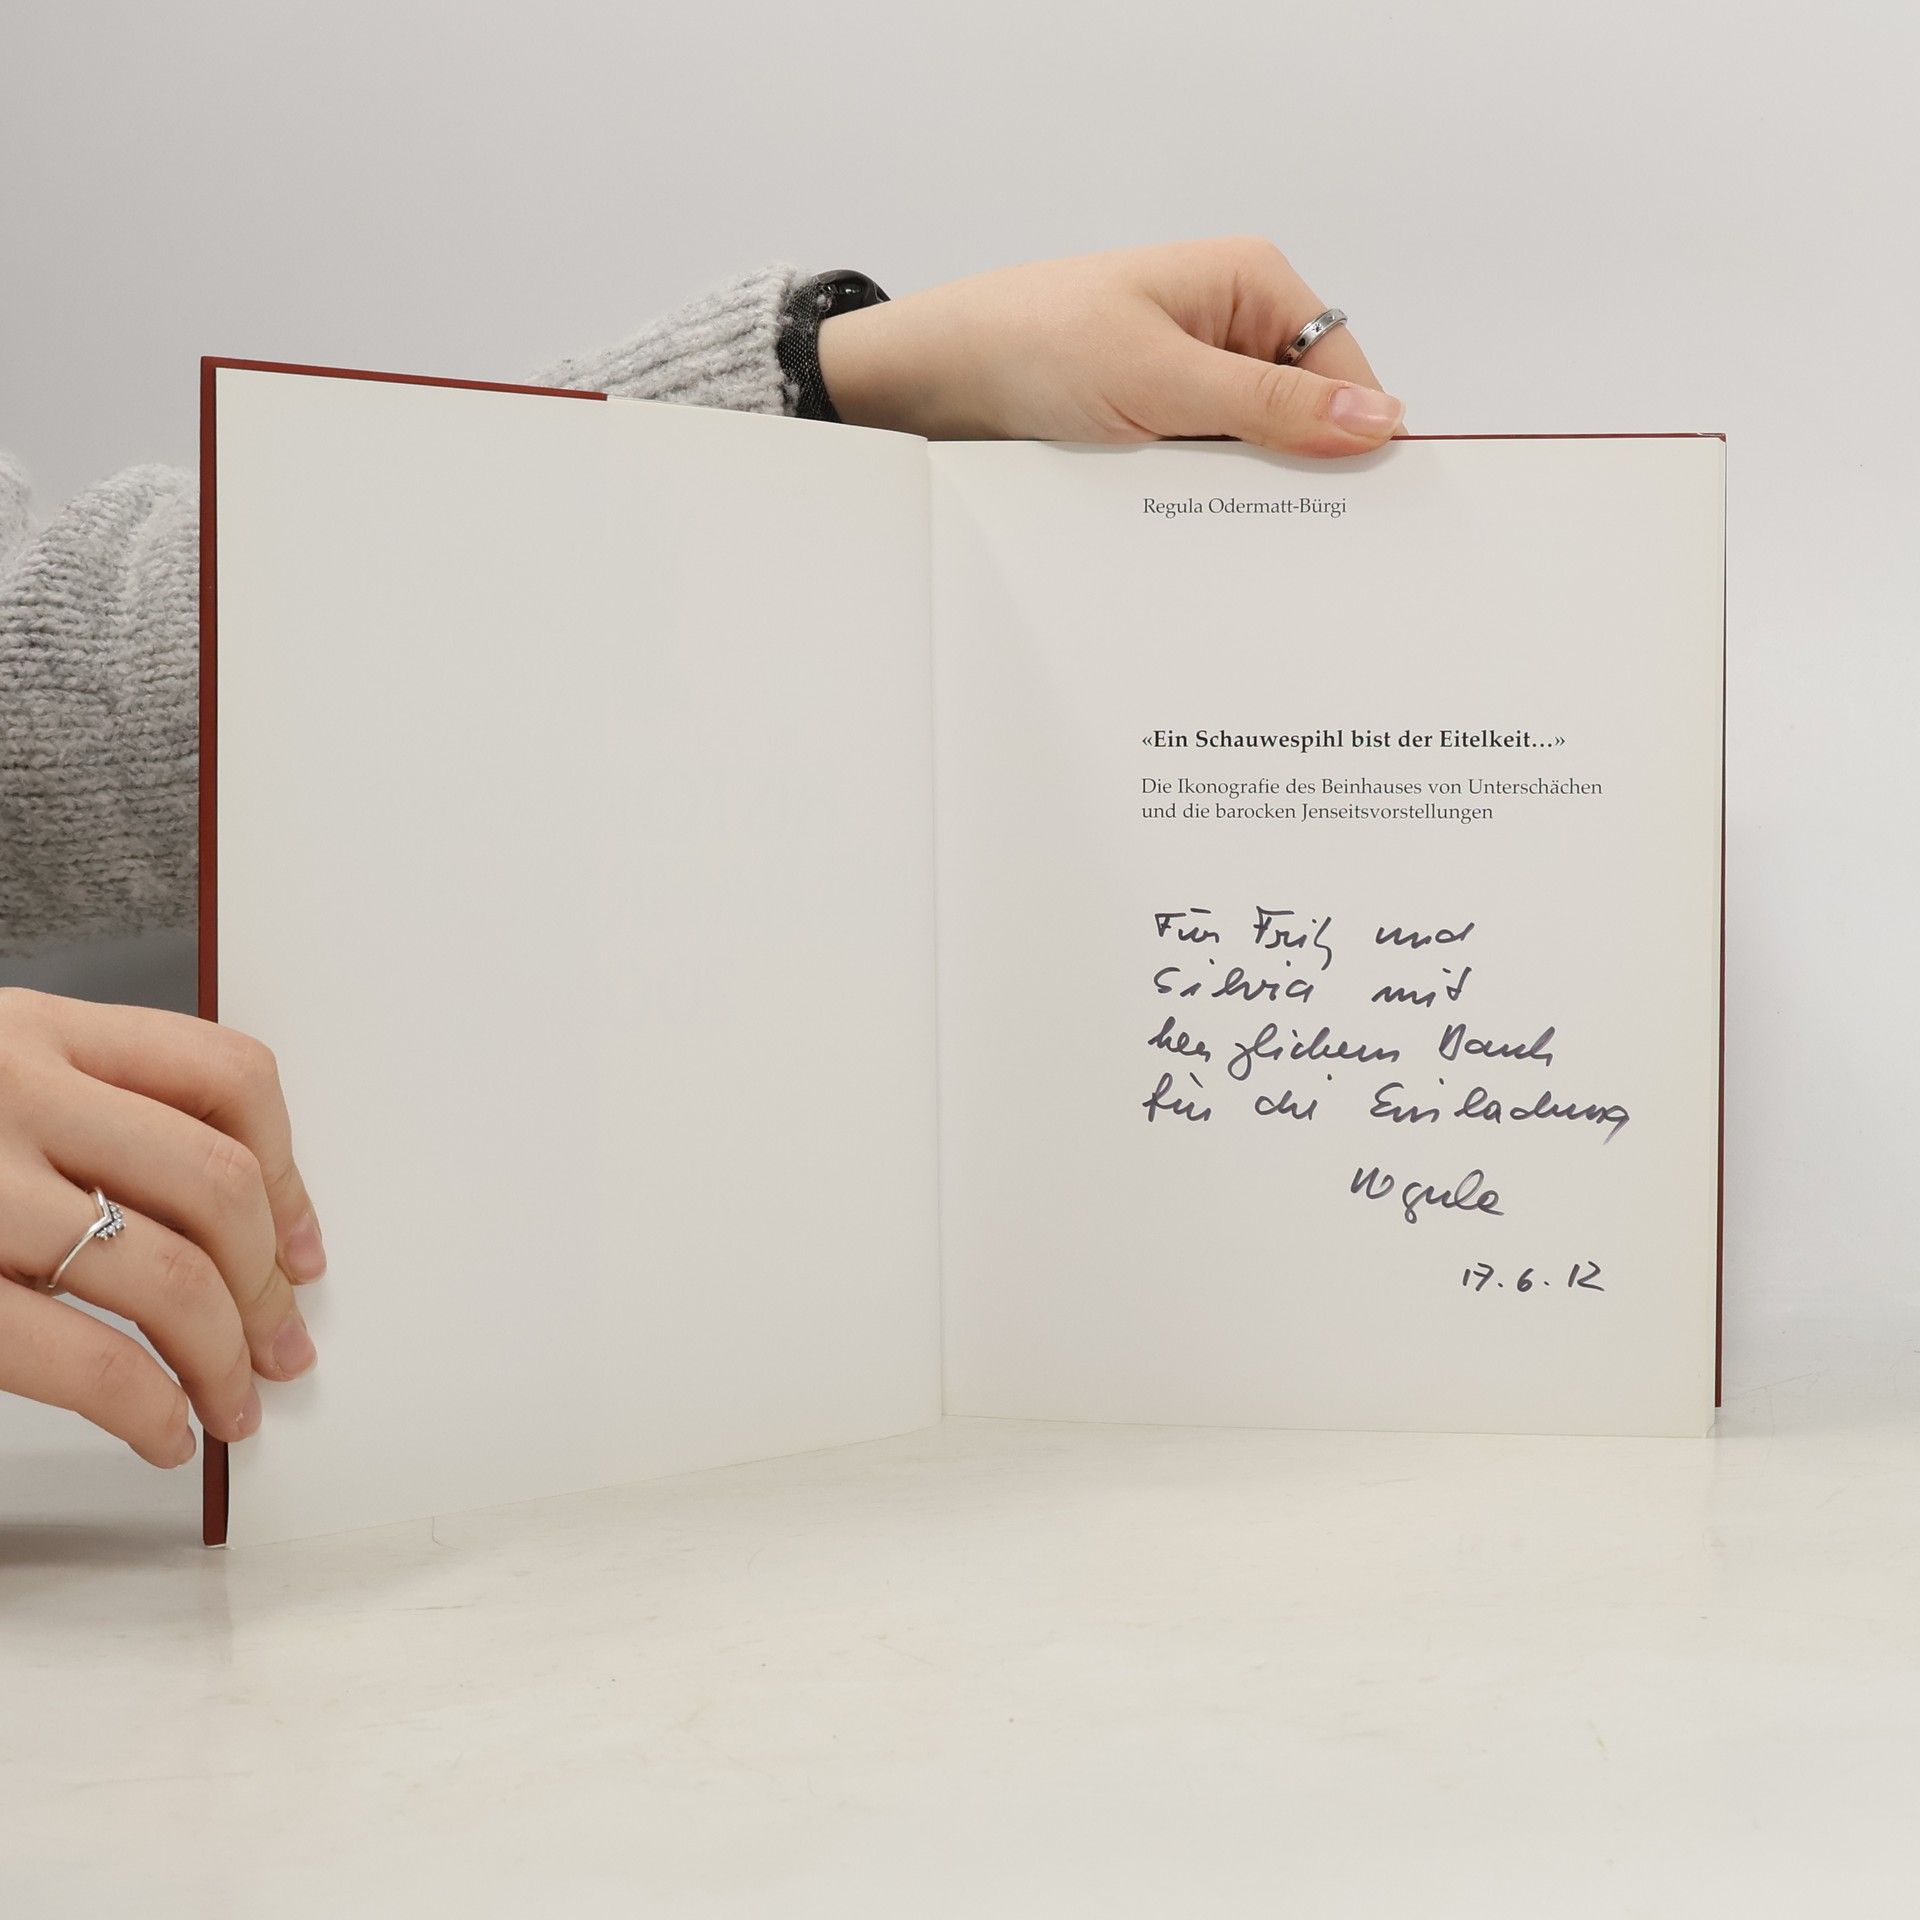 Regula Odermatt-Bürgi
«Ein Schauwespihl bist der Eitelkeit...»
Die Ikonografie des Beinhauses von Unterschächen
und die barocken Jenseitsvorstellungen
Für Fritz und
Silvia mit
herzlichem Dank
für die Einladung
Regula
17.6.12